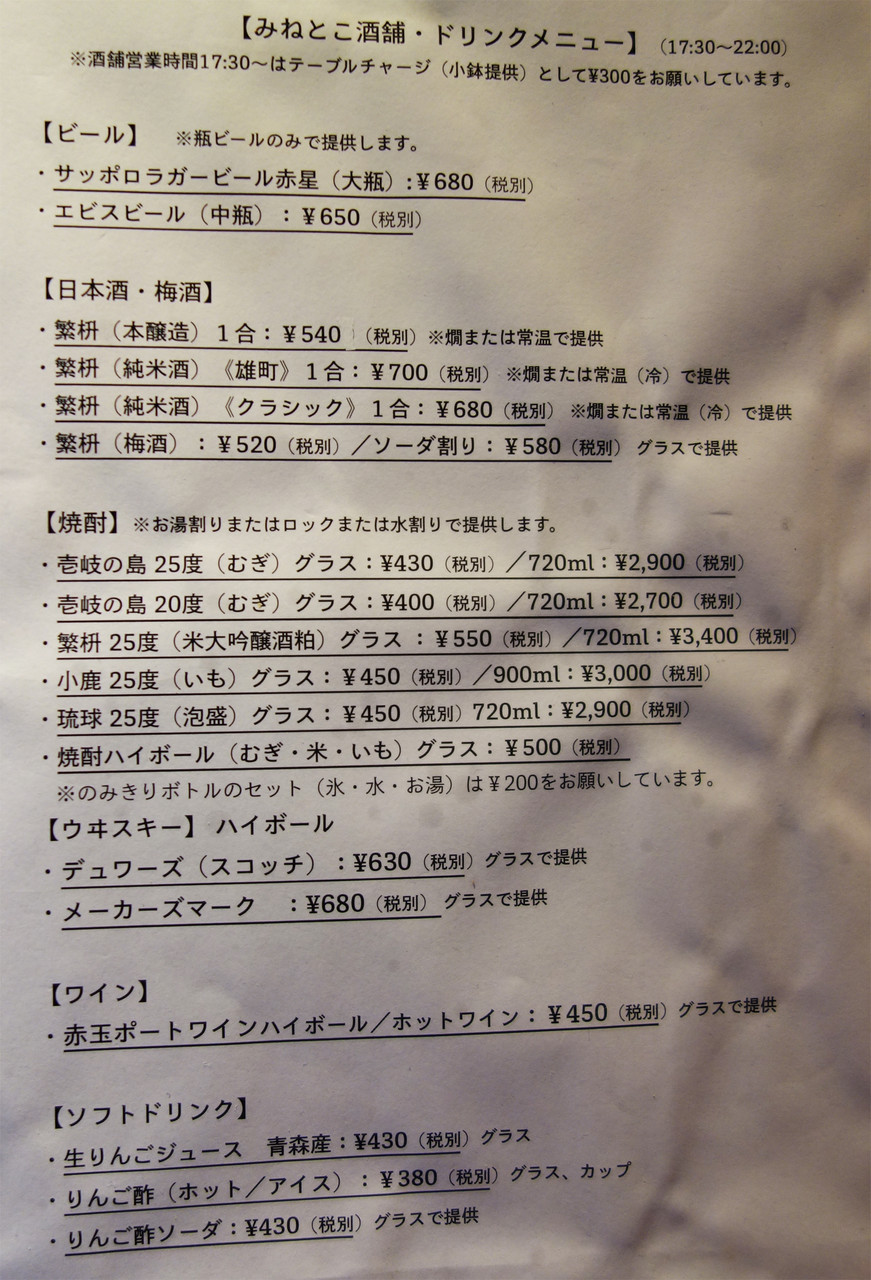 【みねとこ酒舗・ドリンクメニュー】（17:30～22:00）
※酒舗営業時間17:30～はテーブルチャージ（小鉢提供）として¥300をお願いしています。
【ビール】 ※瓶ビールのみで提供します。
・サッポロラガービール赤星（大瓶）:¥680（税別）
・エビスビール（中瓶）：¥650（税別）
【日本酒・梅酒】
・繁枡（本醸造）１合：¥540（税別）※燗または常温で提供
・繁枡（純米酒）《雄町》１合：¥700（税別）※燗または常温（冷）で提供
・繁枡（純米酒）《クラシック》１合：¥680（税別）※燗または常温（冷）で提供
・繁枡（梅酒）：¥520（税別）／ソーダ割り：¥580（税別）グラスで提供
【焼酎】※お湯割りまたはロックまたは水割りで提供します。
・壱岐の島 25度（むぎ）グラス：¥430（税別）／720ml：¥2,900（税別）
・壱岐の島 20度（むぎ）グラス：¥400（税別）／720ml：¥2,700（税別）
・繁枡 25度（米大吟醸酒粕）グラス：¥550（税別）／720ml：¥3,400（税別）
・小鹿 25度（いも）グラス：¥450（税別）／900ml：¥3,000（税別）
・琉球 25度（泡盛）グラス：¥450（税別）720ml：¥2,900（税別）
・焼酎ハイボール（むぎ・米・いも）グラス：¥500（税別）
※のみきりボトルのセット（氷・水・お湯）は¥200をお願いしています。
【ウヰスキー】ハイボール
・デュワーズ（スコッチ）：¥630（税別）グラスで提供
・メーカーズマーク ：¥680（税別）グラスで提供
【ワイン】
・赤玉ポートワインハイボール／ホットワイン：¥450（税別）グラスで提供
【ソフトドリンク】
・生りんごジュース 青森産：¥430（税別）グラス
・りんご酢（ホット／アイス）：¥380（税別）グラス、カップ
・りんご酢ソーダ：¥430（税別）グラスで提供